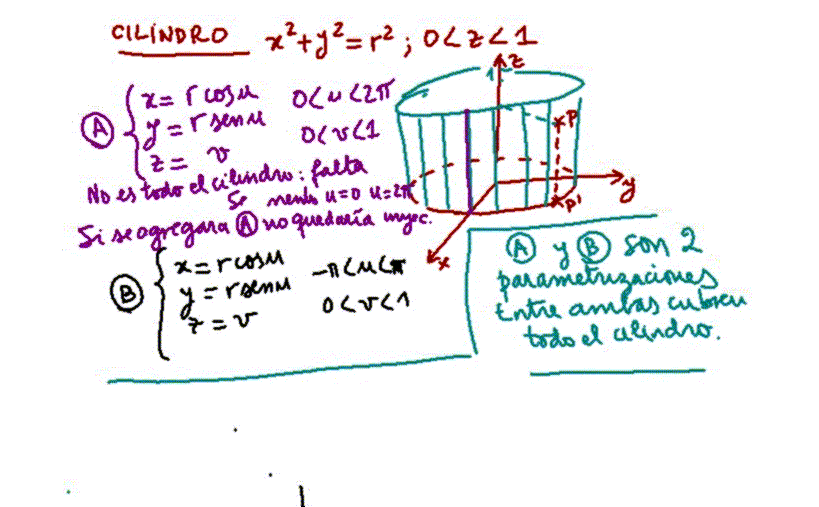 CILINDRO x² + y² = r² ; 0 < z < 1
A
x = r cos u 0 < u < 2π
y = r sen u 0 < v < 1
z = v
No es todo el cilindro: falta
u=0 u=2π
Si se agregara A no quedaría inyec.
B
x = r cos u -π < u < π
y = r sen u 0 < v < 1
z = v
1 z
P
y
P'
x
A y B son 2
parametrizaciones
Entre ambas cubren
todo el cilindro.